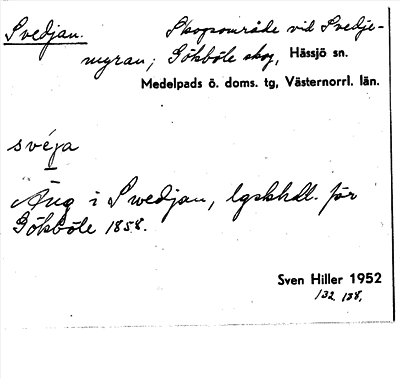 Svedjan. Skogsområde vid Svedje-
myran, Gökböle skog, Hässjö sn.
Medelpads ö. doms. tg, Västernorrl. län.
svéja
Äng i Swedjan, lgskhdl. för
Gökböle 1858.
Sven Hiller 1952
132 138,